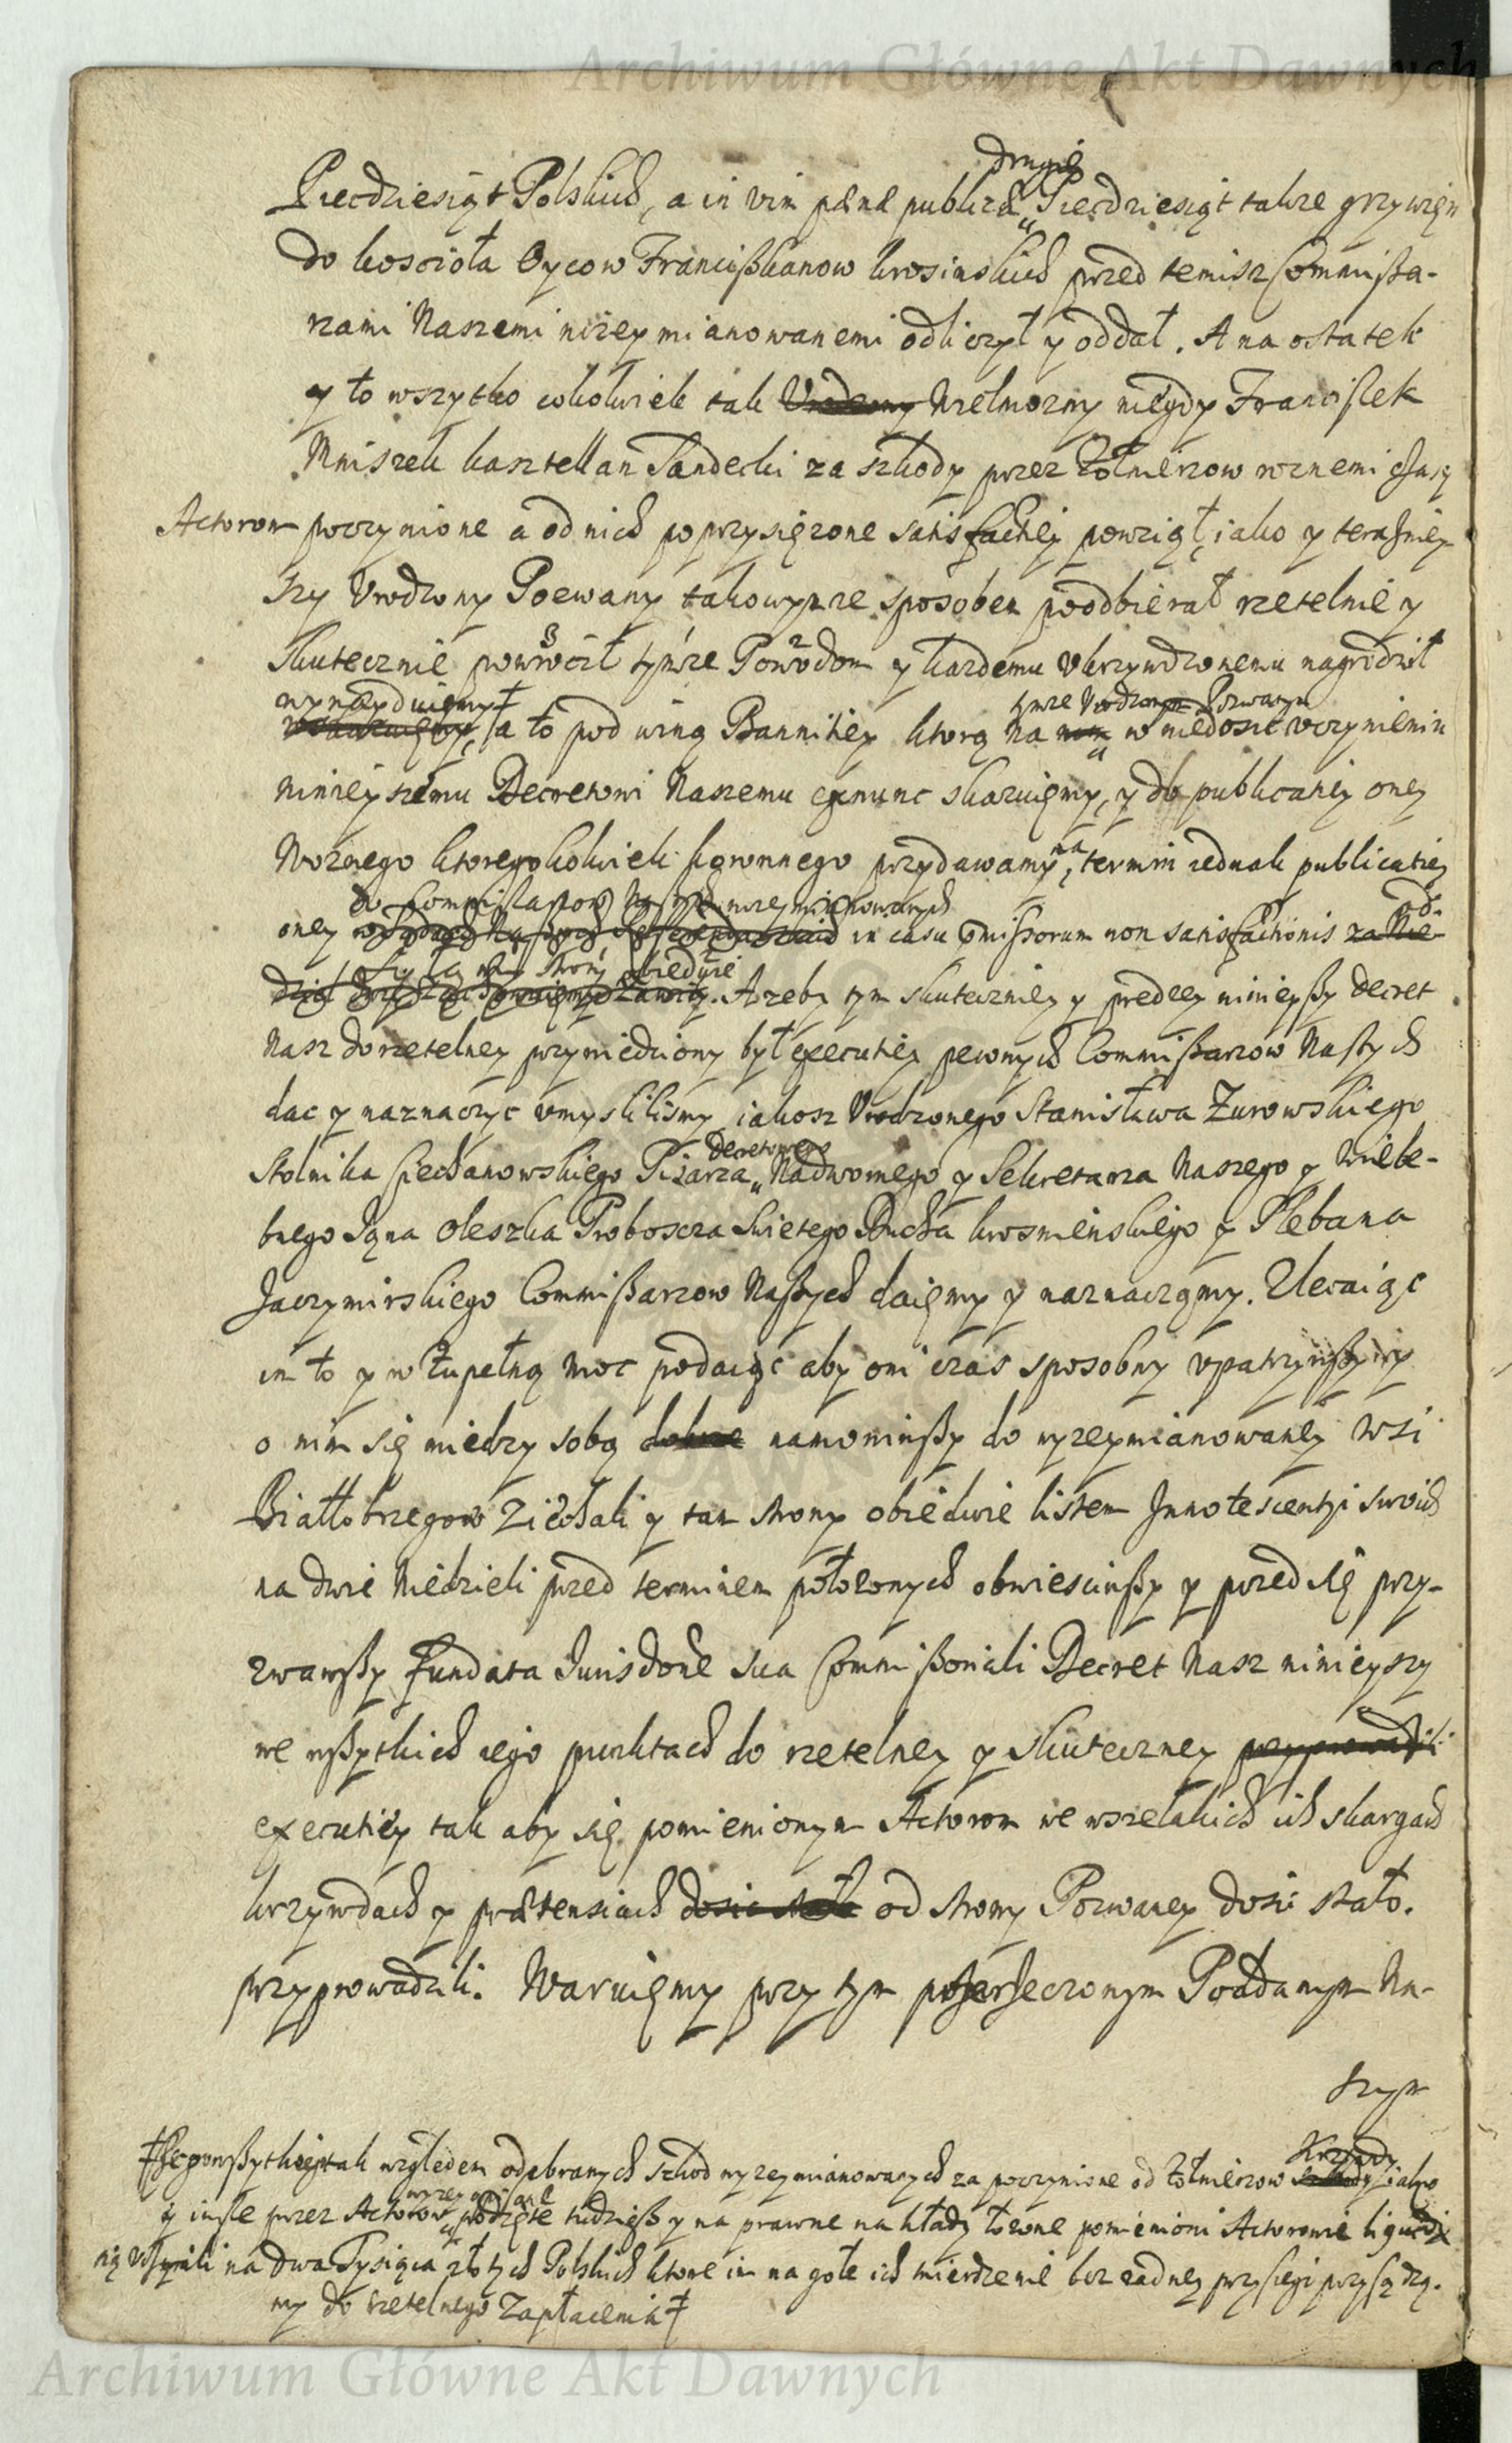 Archiwum Główne Akt Dawnych
drugie
Piecdziesiąt Polskich, a in vim pænæ publicæ Piecdziesiąt takze grzywięn
do koscioła Oycow Franciszkanow krosinskich przed temisz Commißa-
rzami Naszemi nizey mianowanemi odliczył y oddał. A na ostatek
y to wszytko cokolwiek tak Urodzony Wielmozny niegdy Franciszek
Mniszek kasztellan Sandecki za szkody przez Zołnierzow roznemi czasy
Actorom poczynione a od nich poprzysięzone satisfactiey powziął, iako y terazniey-
szy Vrodzony Pozwany takowymze sposobem poodbierał rzetelnie y
skutecznie powrocił tymze Powodom y kazdemu Vkrzywdzonemu nagrodził
wynayduięmy ǂ tymze Vrodzonym Pozwanym
a to pod winą Bannitiey ktorą na w niedosic vczynieniu
Ninieyszemu Decretowi Naszemu exnunc skazuięmy, y do publicatiey oney
Woznego ktoregokolwiek koronnego przydawamy, na termin iednak publicatiey
do Commißarzow Naszych nizey mianowanych od-
oney w Sądach Naszych Referendarskich in casu præmißorum non satisfactionis za Nie-
strony obiedwie
. A zeby tym skuteczniey y prędzey ninieyßy decret
Nasz do rzetelney przywiedziony był executiey pewnych Commißarzow Naszych
dac y naznaczyc vmyslilismy iakosz Vrodzonego Stanisława Zurowskiego
Decretowego
Stolnika Ciechanowskiego Pisarza Nadwornego y Sekretarza Naszego y Wiele-
bnego Jana Oleszka Proboszcza Swietego Ducha krosnienskiego y Plebana
Jaczymirskiego Commißarzow Naßych daięmy y naznaczamy. Zlecaiąc
im to y w Zupełną moc podaiąc aby oni czas sposobny vpatrzywßy y
o nim się miedzy sobą namowiwßy do wyzeymianowaney wsi
Białłobrzegow Ziechali y tam strony obiedwie listem Innotescentyi swoich
na dwie Niedzieli przed terminem połozonych obwiesciwßy y przed się przy-
zwawßy fundata Jurisdone sua Commißoriali Decret Nasz ninieyszy
we wßytkich iego punktach do rzetelney y skuteczney przyprowadzili
executiey tak aby się pomienionym Actorom we wszelakich ich skargach
krzywdach y prætensiach dosic stało od strony Pozwaney dosic stało.
przyprowadzili. Waruięmy przy tym Poddanym Na-
szym
krzywdy
wzgledem odebranych szkod wyzeymianowanych za poczynione od Zołnierzow szkody iako
wyzey mianẽ
y insze przez Actorow podięte tudzieß y na prawne nakłady łozone pomienioni Actorowie liquida-
na dwa Tysiąca złotych Polskich ktore im na gołe ich twierdzenie bez zadney przysiegi przysądza-
my do rzetelnego Zapłacenia ǂ
Archiwum Główne Akt Dawnych